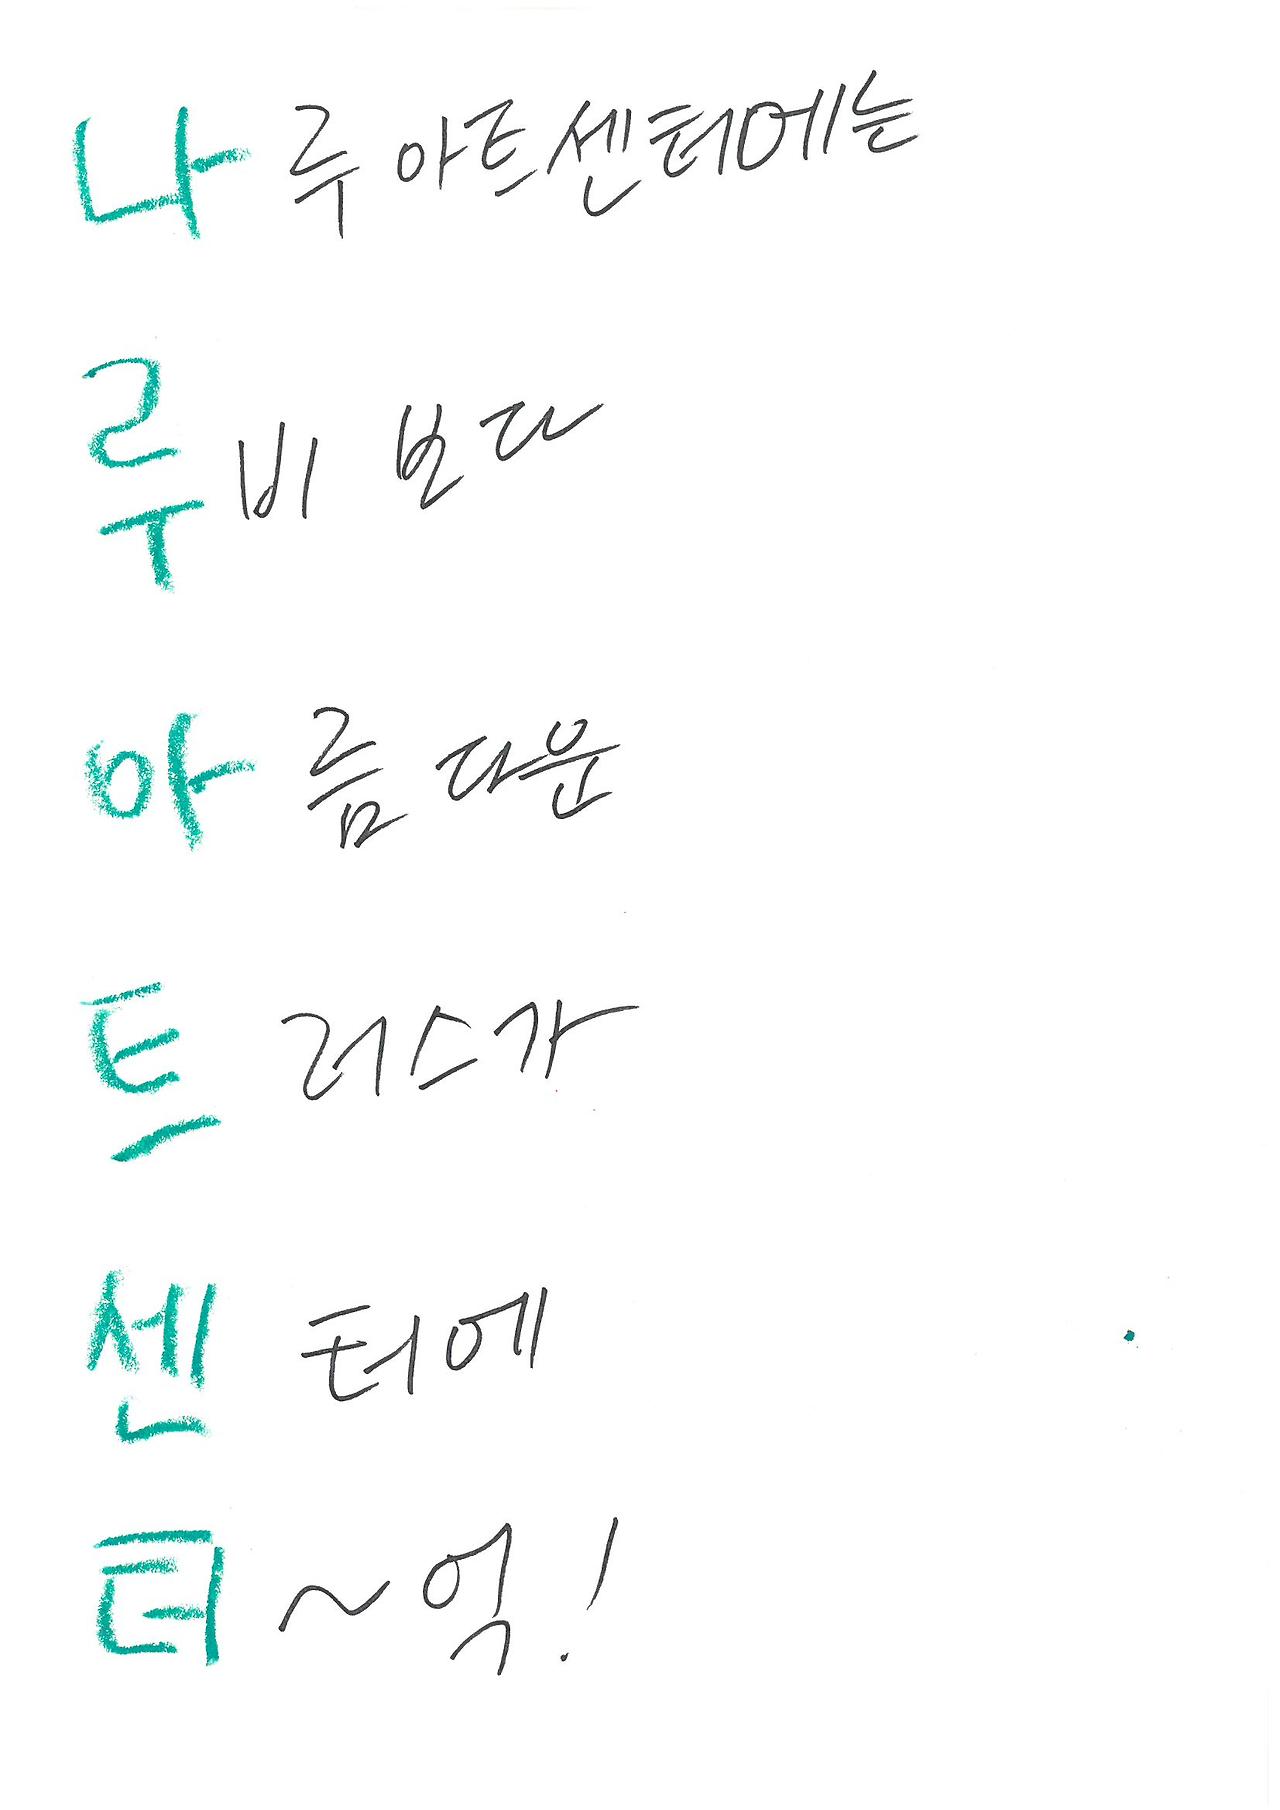 나루 아트센터에는
루비 보다
아름다운
트러스가
센터에
터~억!